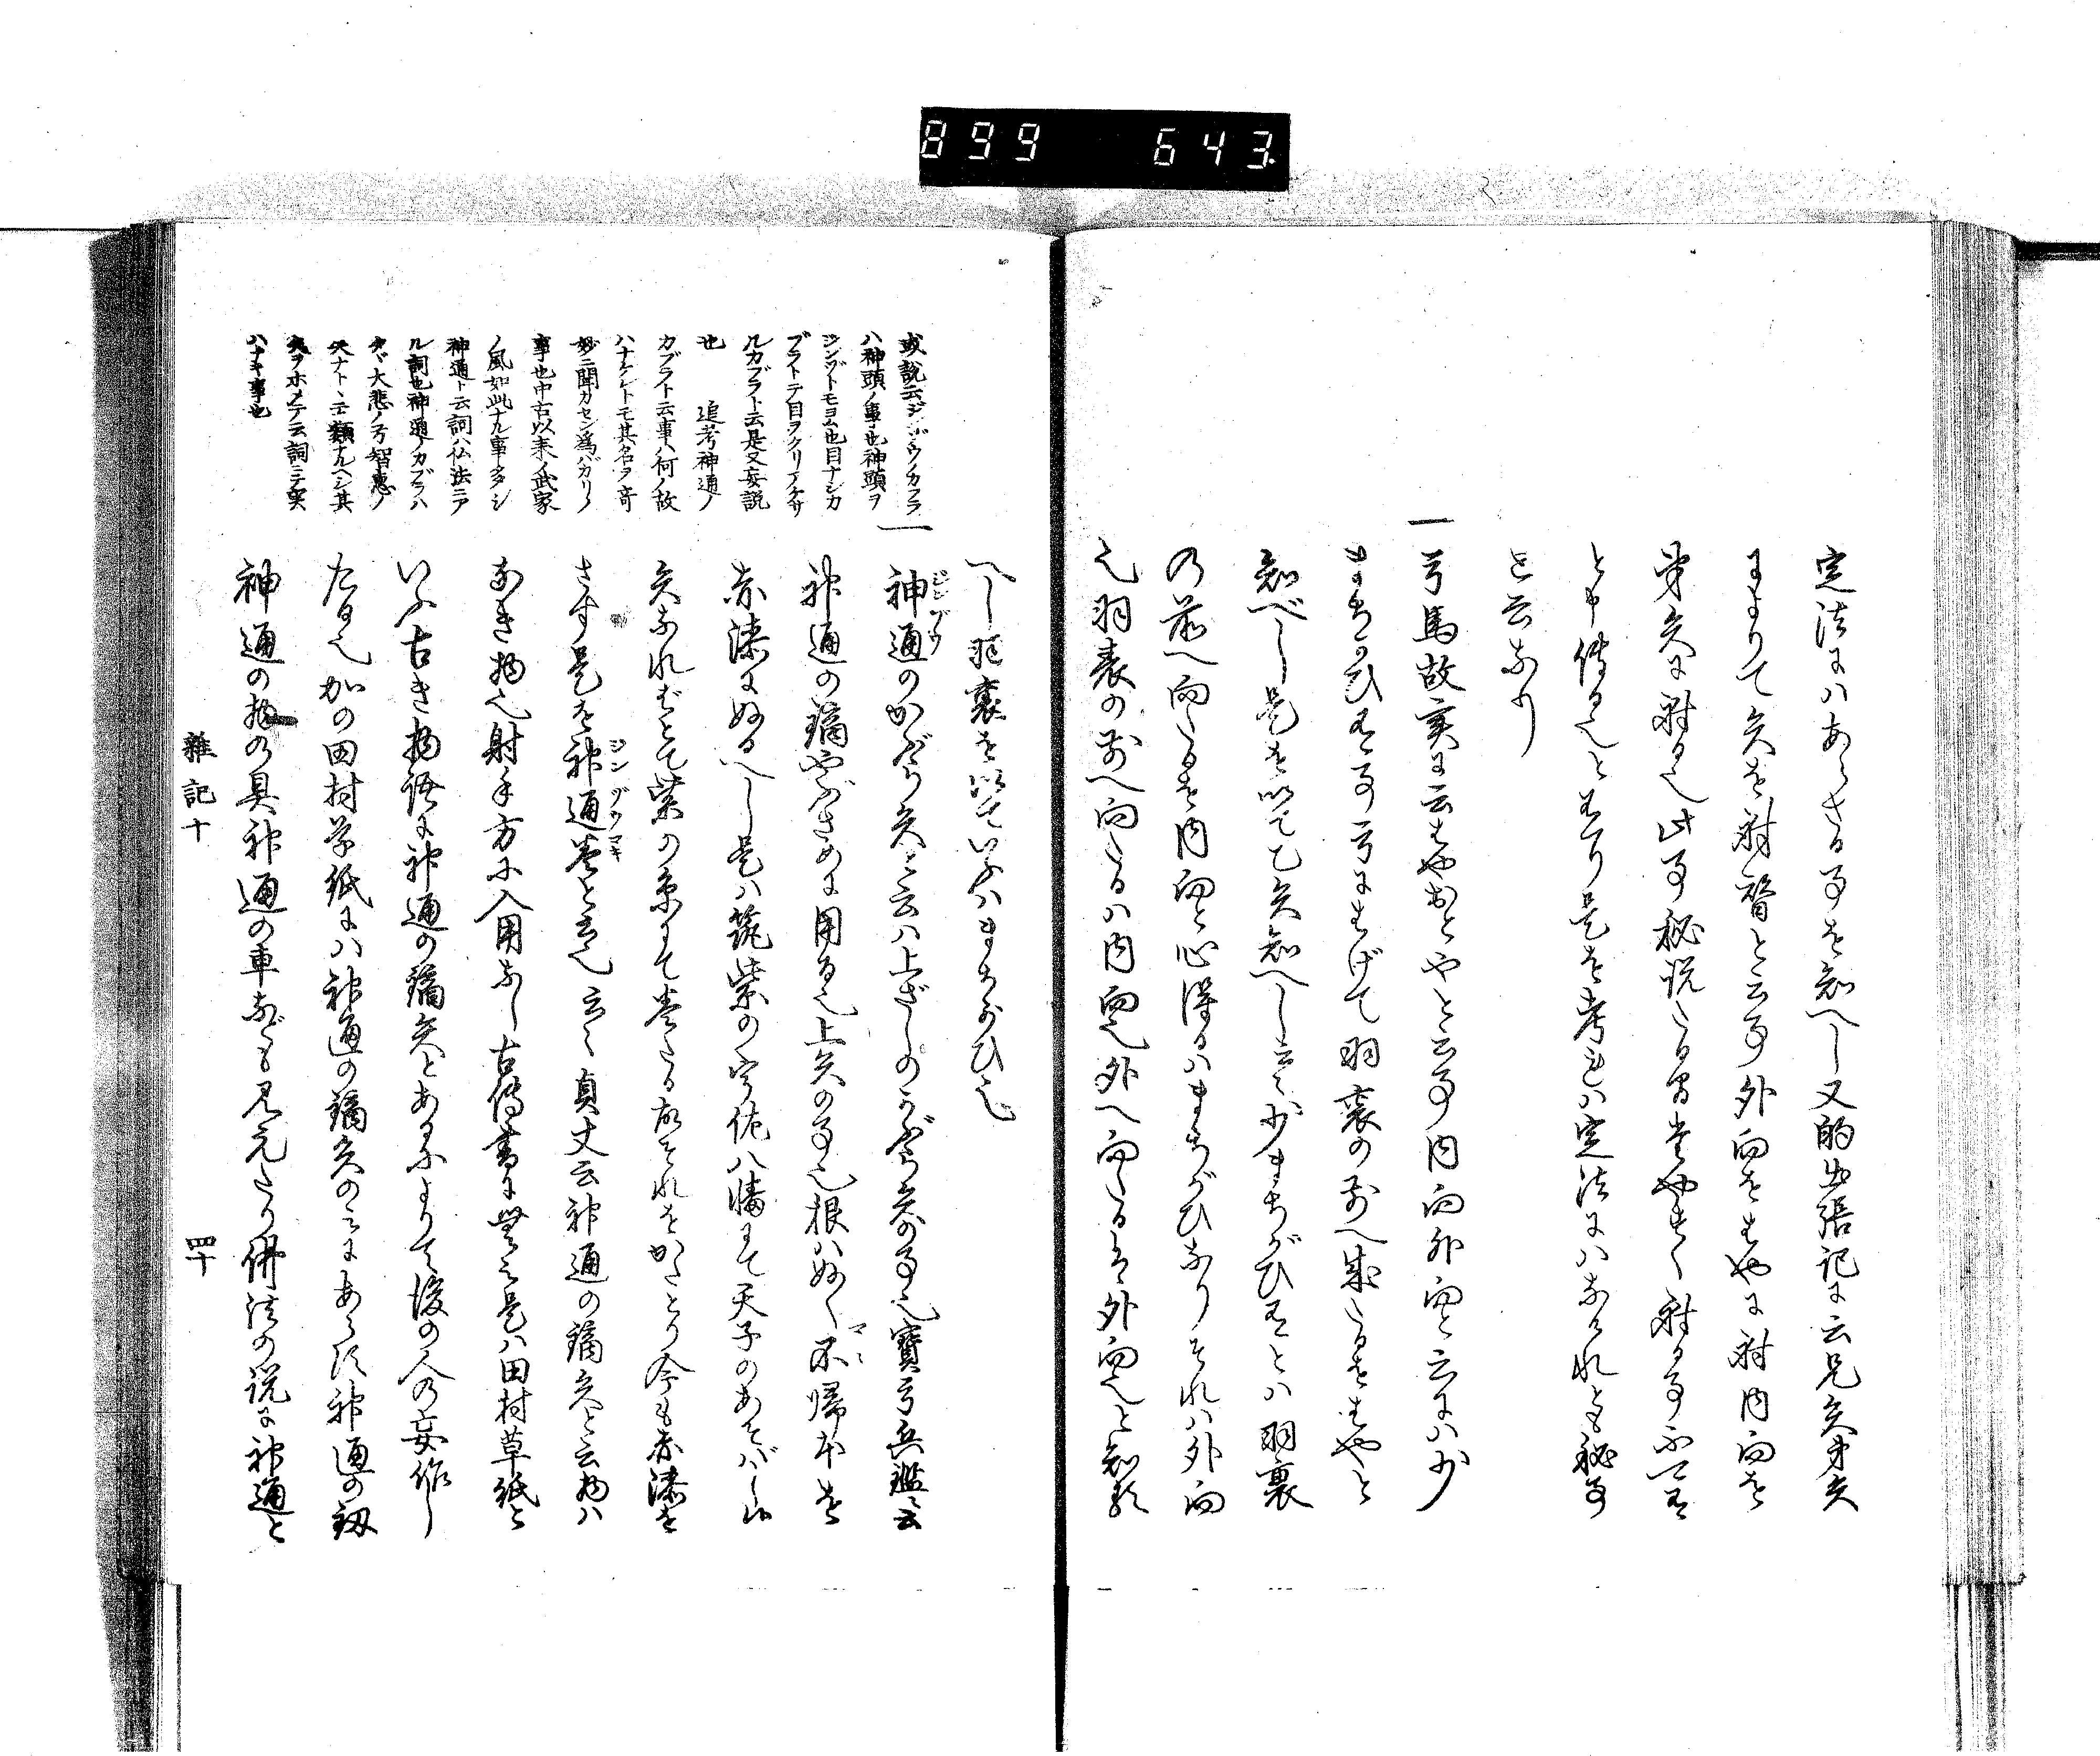 899 643
定法にハあらさる事を知へし又的出張記に云兄矢弟矢
によりて矢を射替と云事外向をはやに射内向を
弟矢に射る也此事秘説たる間たやすく射る事不可有
と申傳る也とあり是を考れハ定法にハなけれとも秘事
と云なり
一弓馬故実に云はやおとやと云事内向外向と云にハ少
まちかひ有事弓にはげて羽裏の前へ成たるをはやと
知べし是を以て乙矢知へし云々少まちがひ有とハ羽裏
の前へ向たるを内向と心得るハまちがひなりそれハ外向
也羽表の前へ向たるハ内向也外へ向たるは外向也と知れ
へし羽裏を以ていふハまちがひ也
一神通のかぶら矢と云ハ上ざしのかぶら矢の事也寶弓兵鑑ニ云
神通の鏑やぶさめに用る也上矢の事也根ハぬく不帰本を
赤漆にぬるへし是ハ筑紫の宇佐八幡にて天子のあそバし
矢なれバとて紫の糸にて巻たる故それをかたとり今も赤漆を
さす是を神通巻と云也云々貞丈云神通の鏑矢と云物ハ
なき物也射手方に入用なし古傳書に無之是ハ田村草紙と
いふ古き物語に神通の鏑矢とあるによりて後の人の妄作し
たる也かの田村草紙にハ神通の鏑矢のミにあらす神通の釼
神通の物の具神通の車なども見えたり佛法の説に神通と
或説云ジンヅウノカフラ
ハ神頭ノ事也神頭ヲ
ジンヅトモヨム也目ナシカ
ブラトテ目ヲクリアケサ
ルカブラト云是又妄説
也　追考神通ノ
カブラト云事ハ何ノ故
ハナケレトモ其名ヲ奇
妙ニ聞カセン為バカリノ
事也中古以来ノ武家
ノ風如此ナル事多シ
神通ト云詞ハ仏法ニア
ル詞也神通ノカブラハ
タヾ大悲ノ弓智恵ノ
矢ナトヽ云類ナルヘシ其
矢ヲホメテ云詞ニテ実
ハナキ事也
雜記十　四十